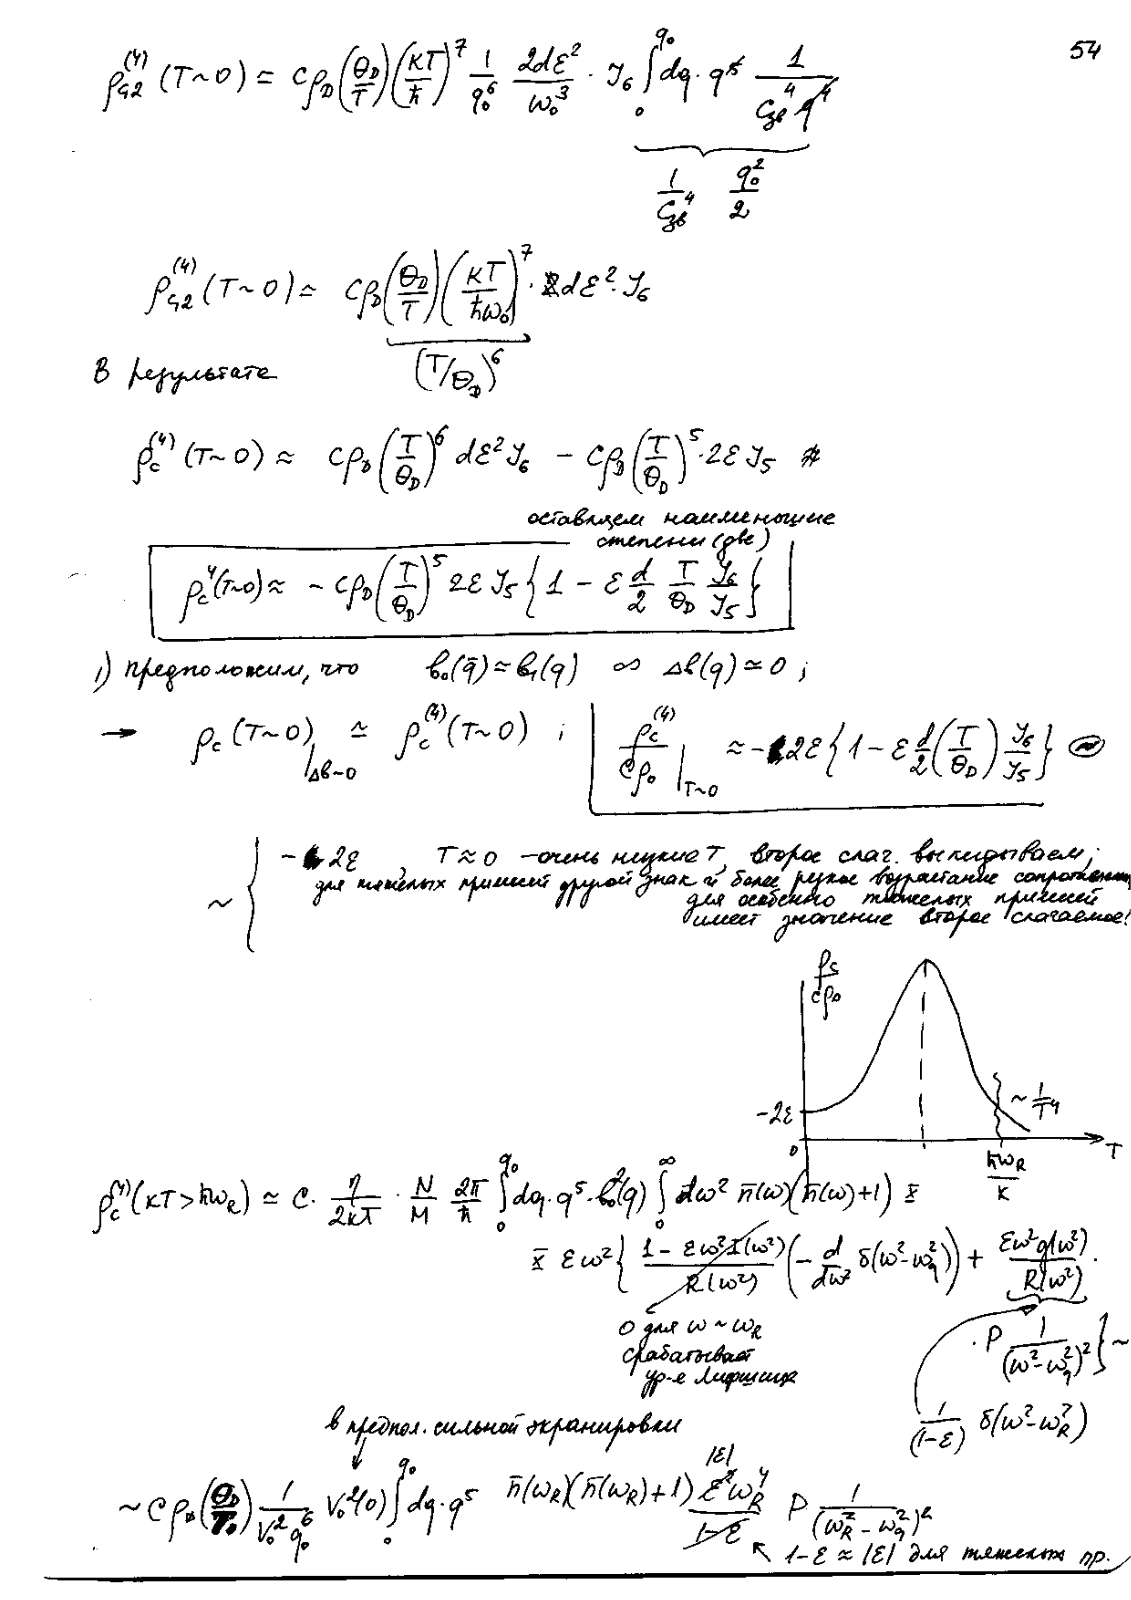 54
ρ_{q2}^{(4)} (T~0) ≃ Cρ_D (Θ_D/T) (кT/ħ)^7 1/q_0^6 2dε^2/ω_0^3 · J_6 ∫_0^{q_0} dq · q^5 1/(C_{зв}^4 q^4)
1/C_{зв}^4 q_0^2/2
ρ_{q2}^{(4)} (T~0) ≃ Cρ_D (Θ_D/T) (кT/ħω_0)^7 · dε^2 · J_6
(T/Θ_D)^6
В результате
ρ_c^{(4)} (T~0) ≈ Cρ_D (T/Θ_D)^6 dε^2 J_6 − Cρ_D (T/Θ_D)^5 · 2ε J_5
оставляем наименьшие
степени (две)
ρ_c^4 (T~0) ≈ − Cρ_D (T/Θ_D)^5 2ε J_5 {1 − ε d/2 T/Θ_D J_6/J_5}
1) Предположим, что b_0(q) ≃ b_1(q) ∞ Δb(q) ≃ 0 ;
→ ρ_c (T~0)|_{Δb~0} ≃ ρ_c^{(4)} (T~0) ; ρ_c^{(4)}/Cρ_0 |_{T~0} ≈ − 2ε {1 − ε d/2 (T/Θ_D) J_6/J_5} ~
~ { − 2ε , T ≈ 0 – очень низкие T, второе слаг. выкидываем;
для тяжелых примесей другой знак и более резкое возрастание сопротивлен
для особенно тяжелых примесей
имеет значение второе слагаемое!
ρ_c/Cρ_0
−2ε
~ 1/T^4
0
T
ħω_R/к
ρ_c^{(4)} (кT > ħω_R) ≃ C · η/2кT · N/M 2π/ħ ∫_0^{q_0} dq · q^5 · b_0^2(q) ∫_0^∞ dω^2 n̄(ω)(n̄(ω)+1) ×
× εω^2 { (1 − εω^2 I(ω^2))/R(ω^2) (− d/dω^2 δ(ω^2−ω_q^2)) + εω^2 g(ω^2)/R(ω^2) ·
0 для ω ~ ω_R
· P 1/(ω^2−ω_q^2)^2 } ~
срабатывает
ур-е Лифшица
1/(1−ε) δ(ω^2−ω_R^2)
в предпол. сильной экранировки
~ Cρ_D (Θ_D/T_0) 1/(V_0^2 q_0^6) V_0^2(0) ∫_0^{q_0} dq · q^5 n̄(ω_R)(n̄(ω_R)+1) |ε| ε^2 ω_R^4/(1−ε) P 1/(ω_R^2 − ω_q^2)^2
1−ε ≈ |ε| для тяжелых пр.